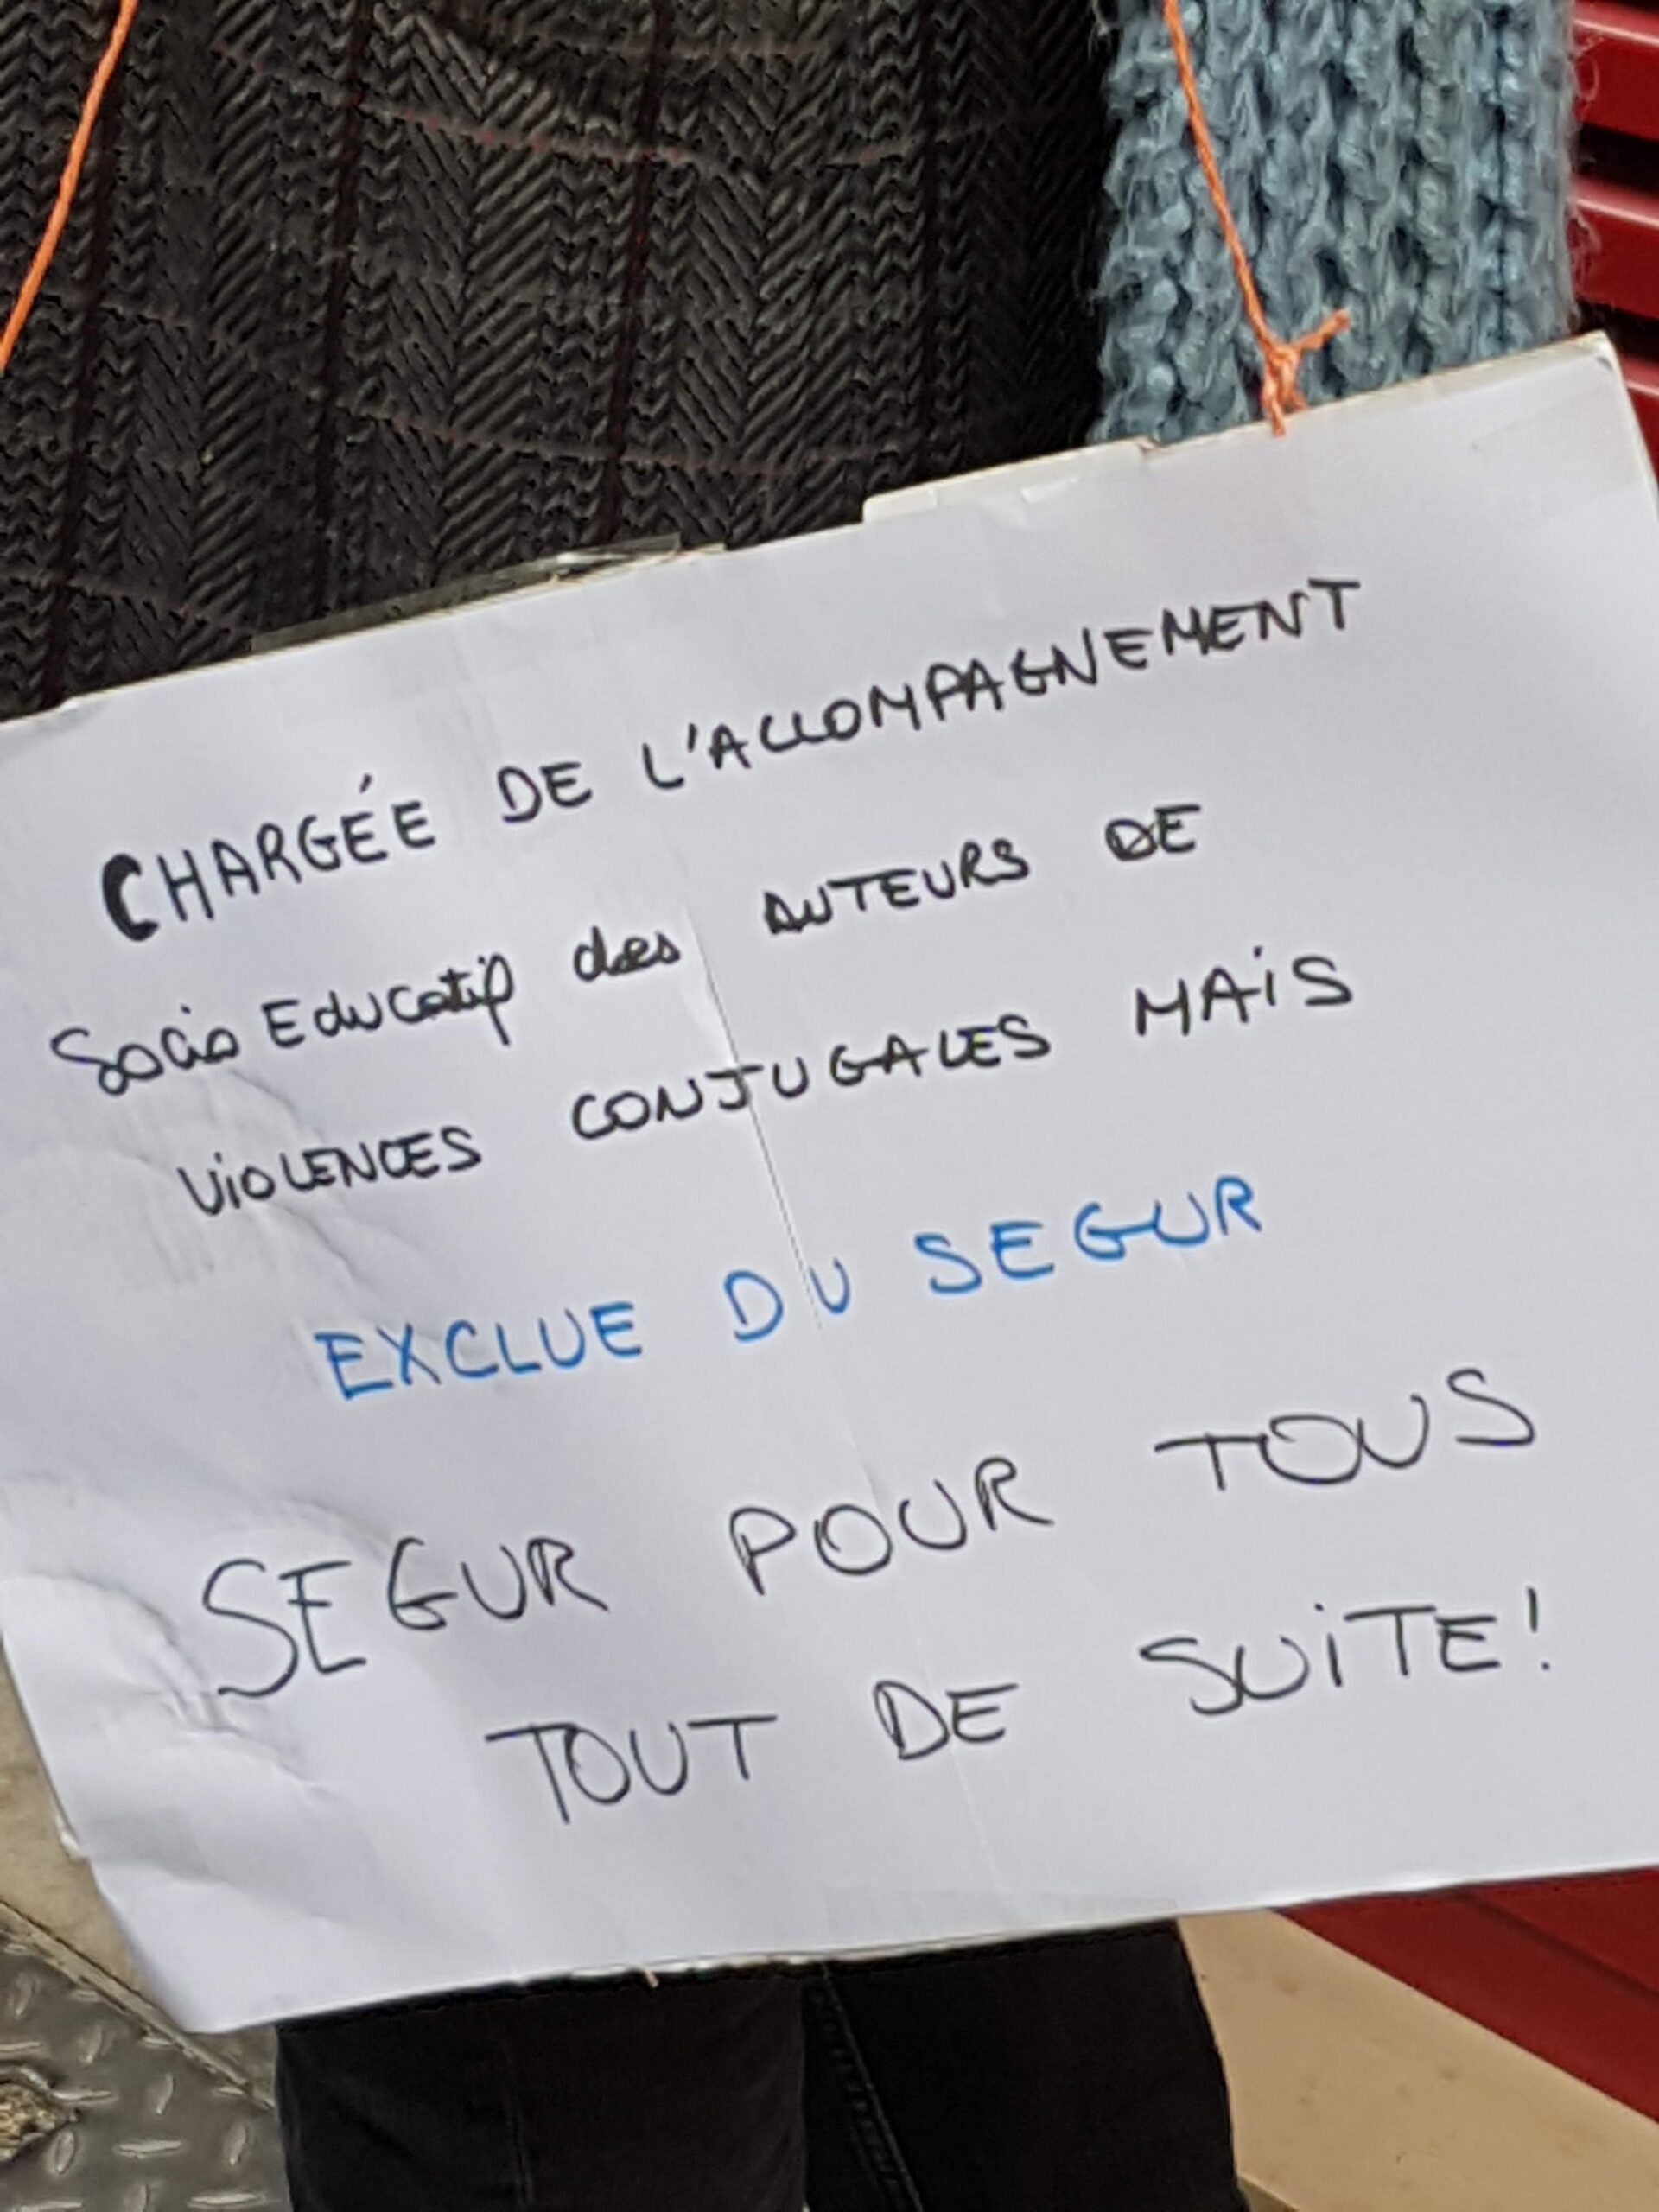 CHARGÉE DE L'ACCOMPAGNEMENT
Socio Educatif des AUTEURS DE
ViOLENCES CONJUGALES MAiS
EXCLUE DU SEGUR
SEGUR POUR TOUS
TOUT DE SUiTE!